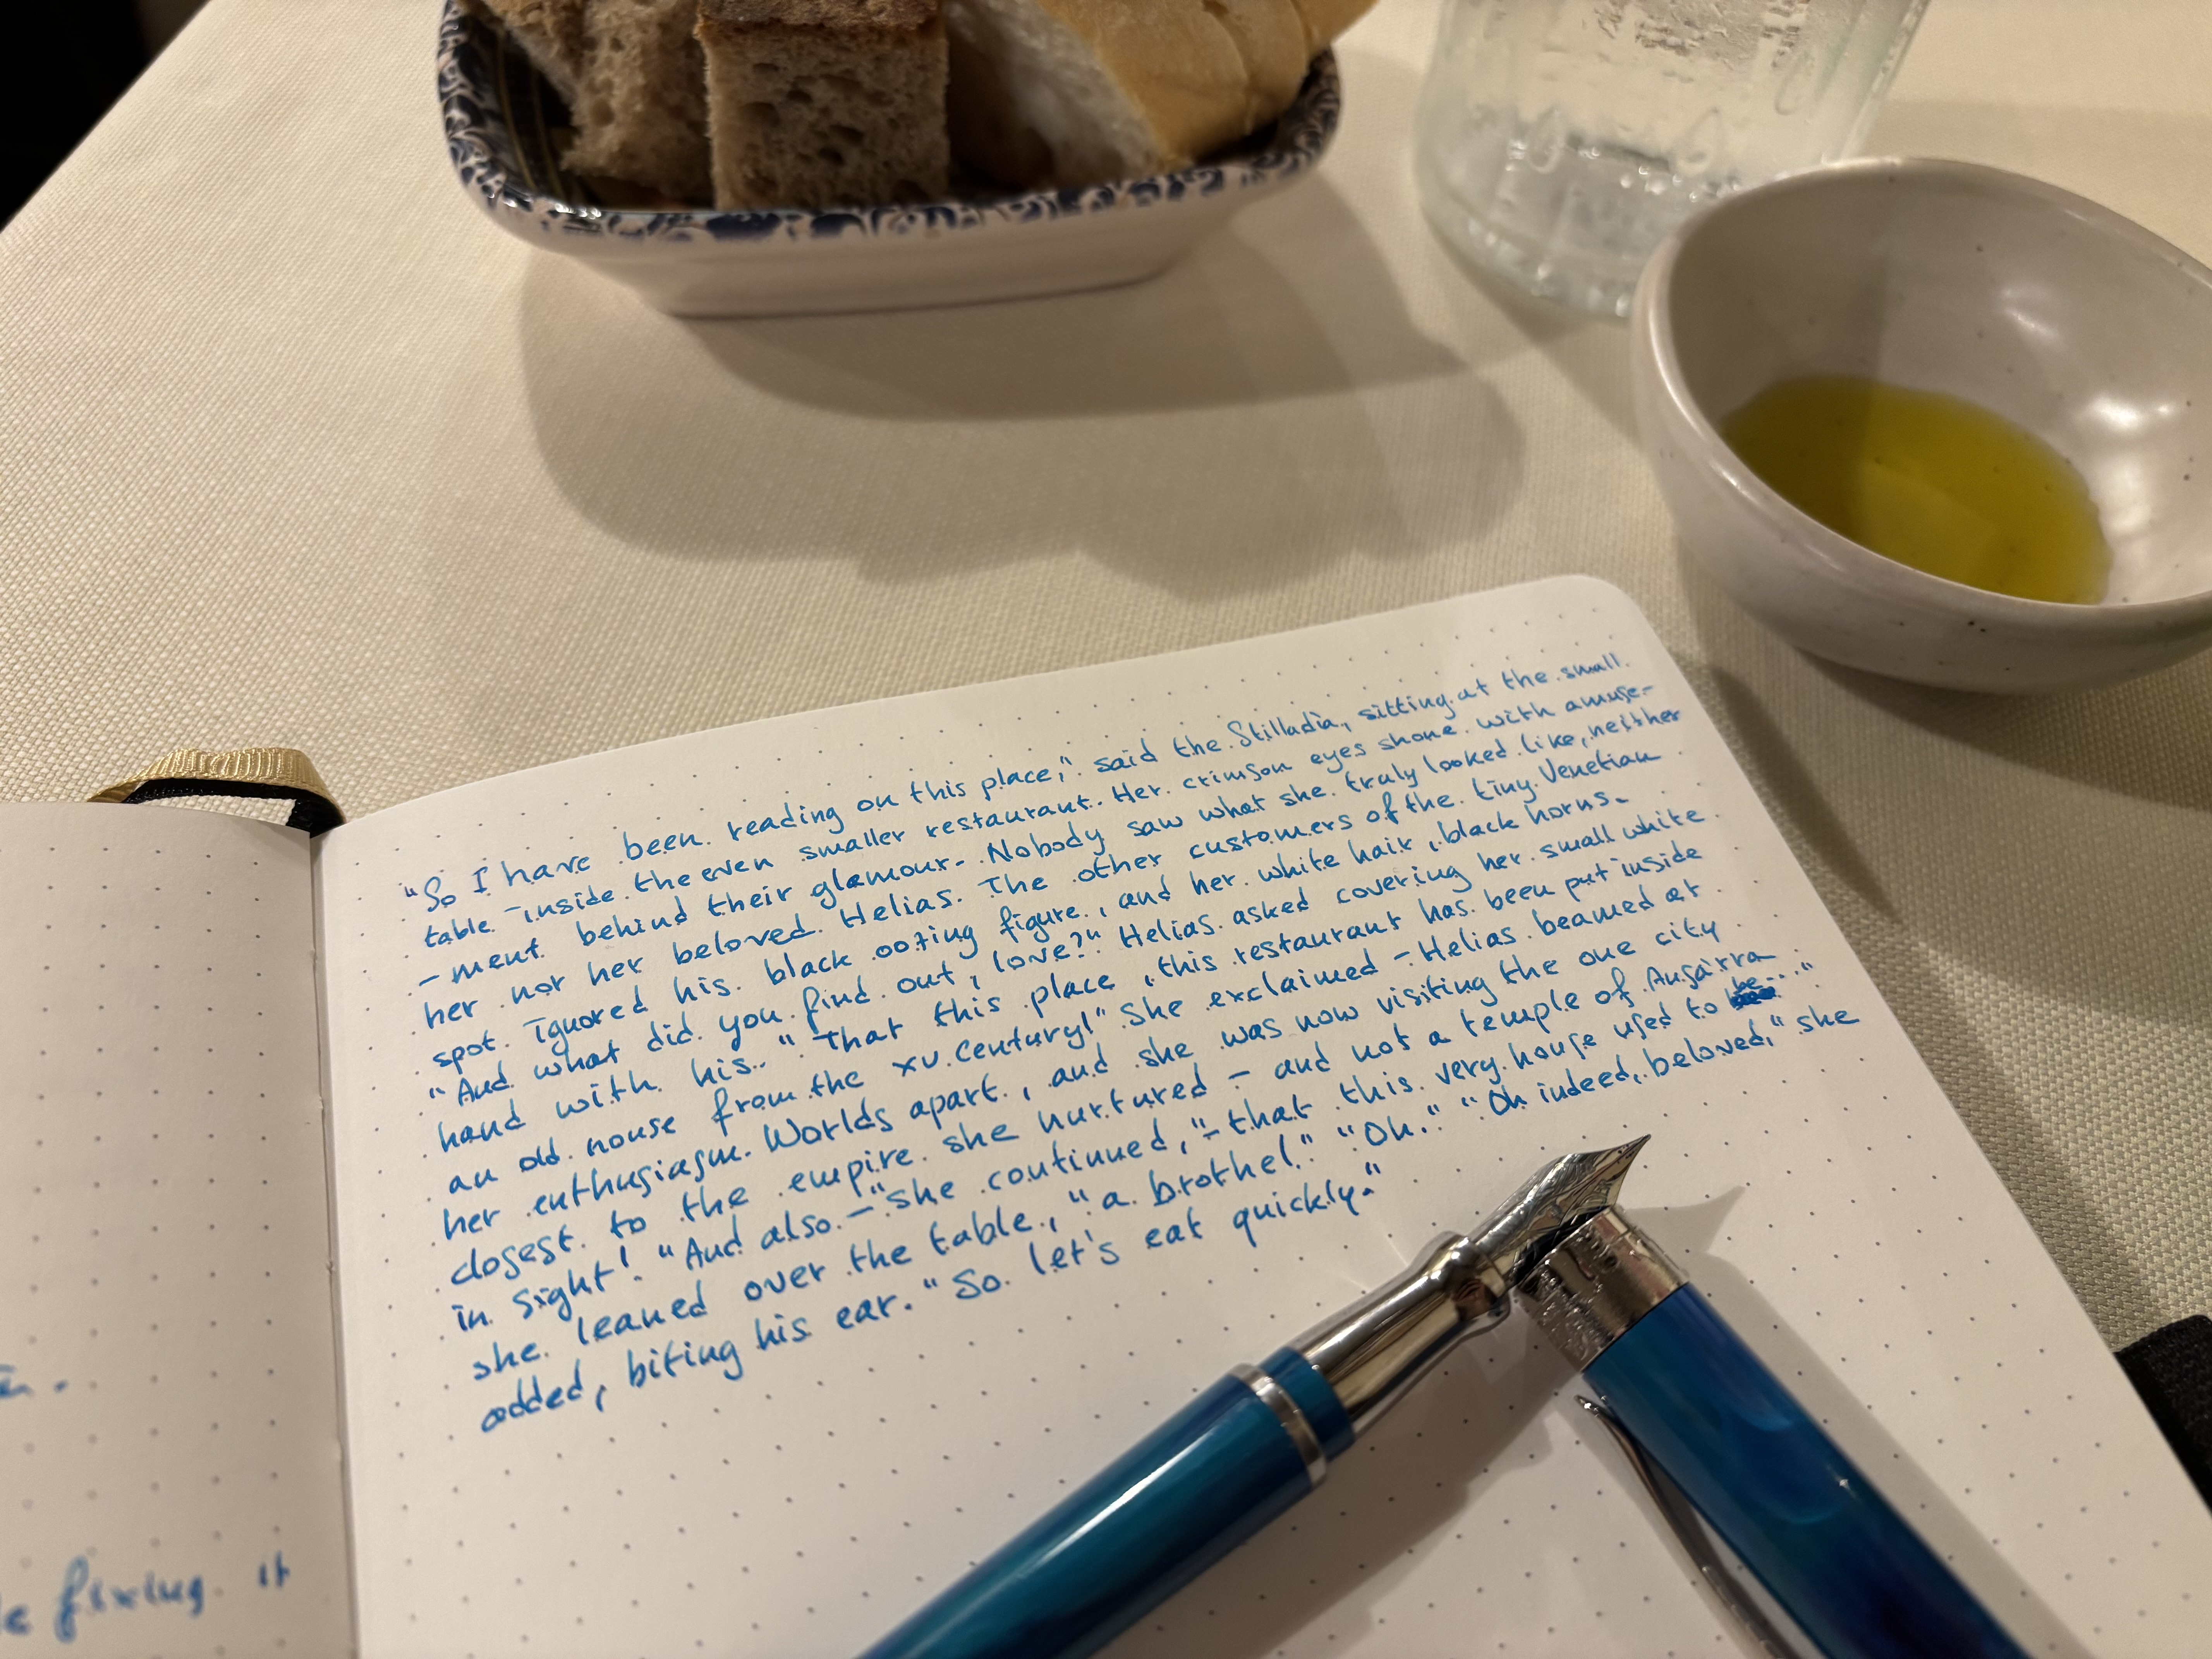 "So I have been reading on this place," said the Stilladia, sitting at the small
table inside the even smaller restaurant. Her crimson eyes shone with amuse-
-ment behind their glamour. Nobody saw what she truly looked like, neither
her nor her beloved Helias. The other customers of the tiny Venetian
spot. Ignored his black oozing figure, and her white hair, black horns.
"And what did you find out, love?" Helias asked covering her small white
hand with his. "That this place, this restaurant has been put inside
an old house from the XV. Century!" She exclaimed - Helias beamed at
her enthusiasm. Worlds apart, and she was now visiting the one city
closest to the empire she nurtured - and not a temple of Ausarra
in sight! "And also - "she continued, "- that this very house used to be..."
she leaned over the table, "a brothel." "Oh." "Oh indeed, beloved," she
added, biting his ear. "So let's eat quickly."
fixing it